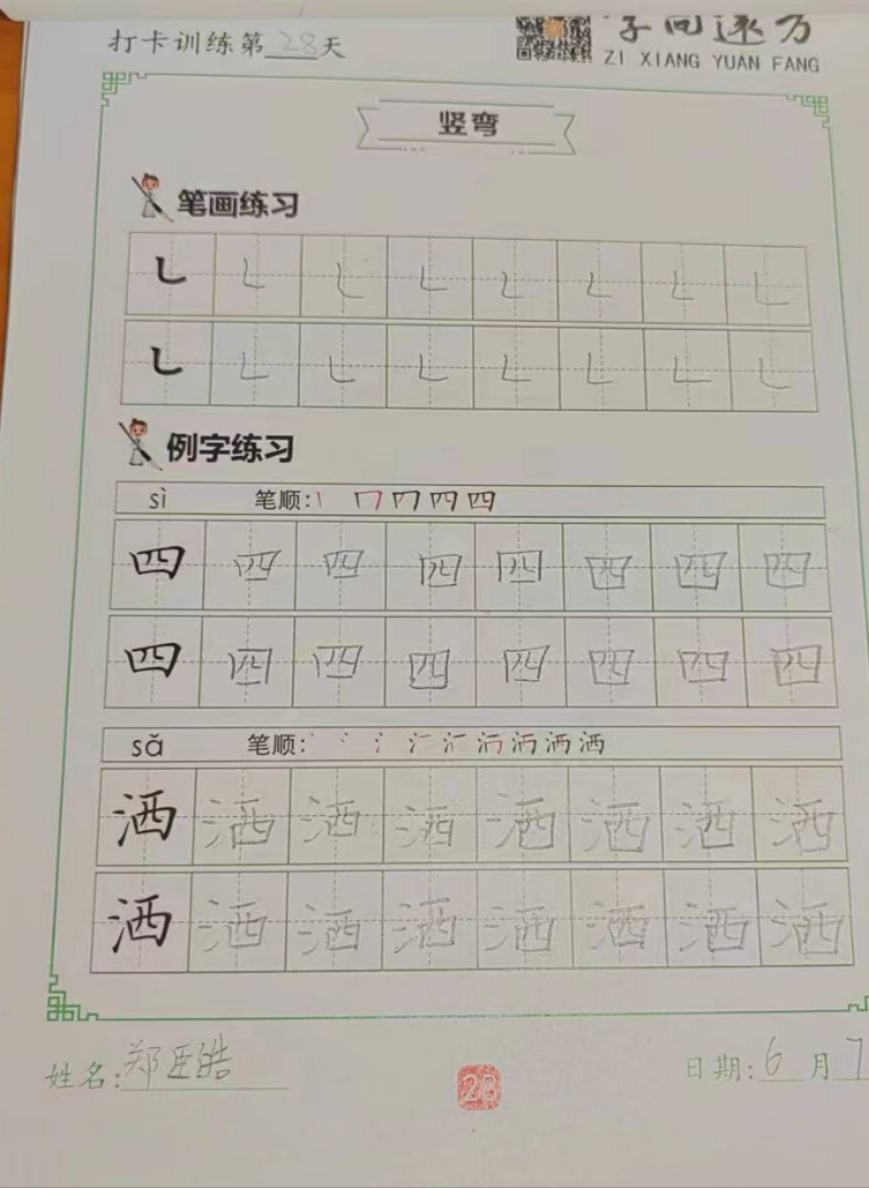 打卡训练第28天
字向远方
ZI XIANG YUAN FANG
竖弯
笔画练习
例字练习
sì 笔顺:丨 冂 冂 四 四
四 四 四 四 四 四 四 四
四 四 四 四 四 四 四 四
sǎ 笔顺:
洒 洒 洒 洒 洒 洒 洒 洒
洒 洒 洒 洒 洒 洒 洒 洒
姓名:郑臣皓
28
日期:6月7